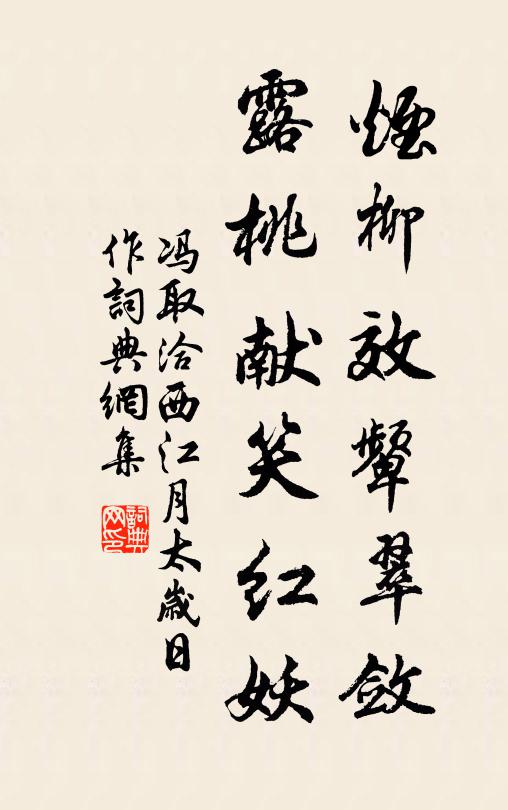 煙柳效颦翠斂
露桃献笑红妖
冯取洽西江月太歲日
作詞典網集
詞典网印